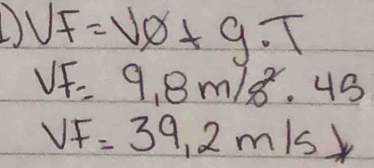 1) VF = V0 + g.T
VF = 9,8 m/s². 4s
VF = 39,2 m/s ↓